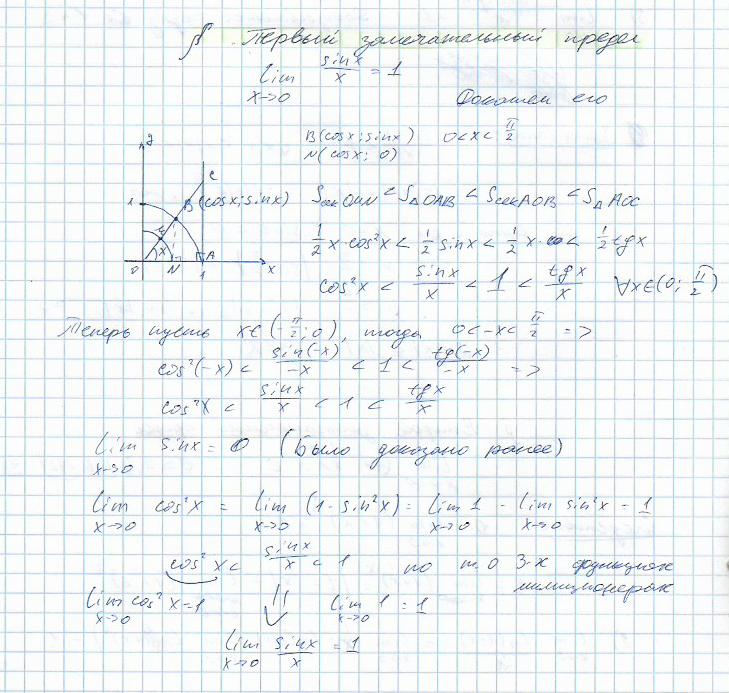 § Первый замечательный предел
lim x→0 sinx/x = 1
Докажем его
B(cosx; sinx) 0<x<π/2
N(cosx; 0)
y
C
1
B(cosx; sinx)
M
x
0 N 1 A x
Sсек OMN < S△OAB < Sсек AOB < S△AOC
1/2 x·cos²x < 1/2 sinx < 1/2 x < 1/2 tgx
cos²x < sinx/x < 1 < tgx/x ∀x∈(0; π/2)
Теперь пусть x∈(-π/2; 0), тогда 0<-x<π/2 =>
cos²(-x) < sin(-x)/-x < 1 < tg(-x)/-x =>
cos²x < sinx/x < 1 < tgx/x
lim x→0 sinx = 0 (Было доказано ранее)
lim x→0 cos²x = lim x→0 (1 - sin²x) = lim x→0 1 - lim x→0 sin²x = 1
cos²x < sinx/x < 1 по т. о 3-х функциях
милиционерах
lim x→0 cos²x = 1 ⇓ lim x→0 1 = 1
lim x→0 sinx/x = 1